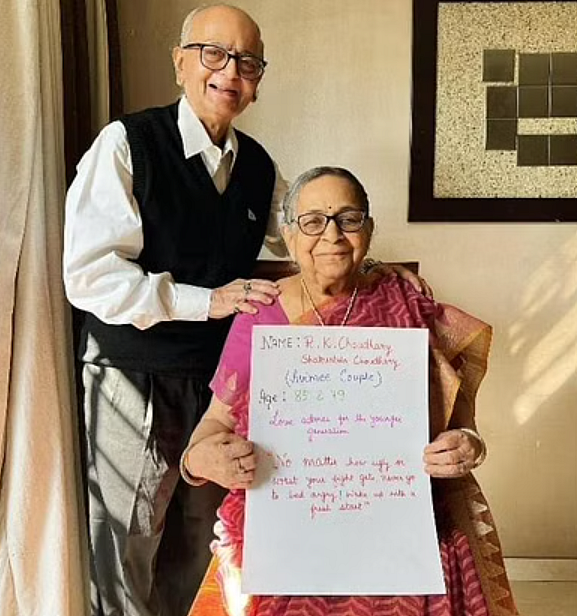 NAME : R. K. Choudhary
Choudhary
Couple)
Age : 85 & 79
Love advice for the younger
generation
"No matter how ugly or
worst your fight gets never go
to bed angry! Wake up with a
fresh start"